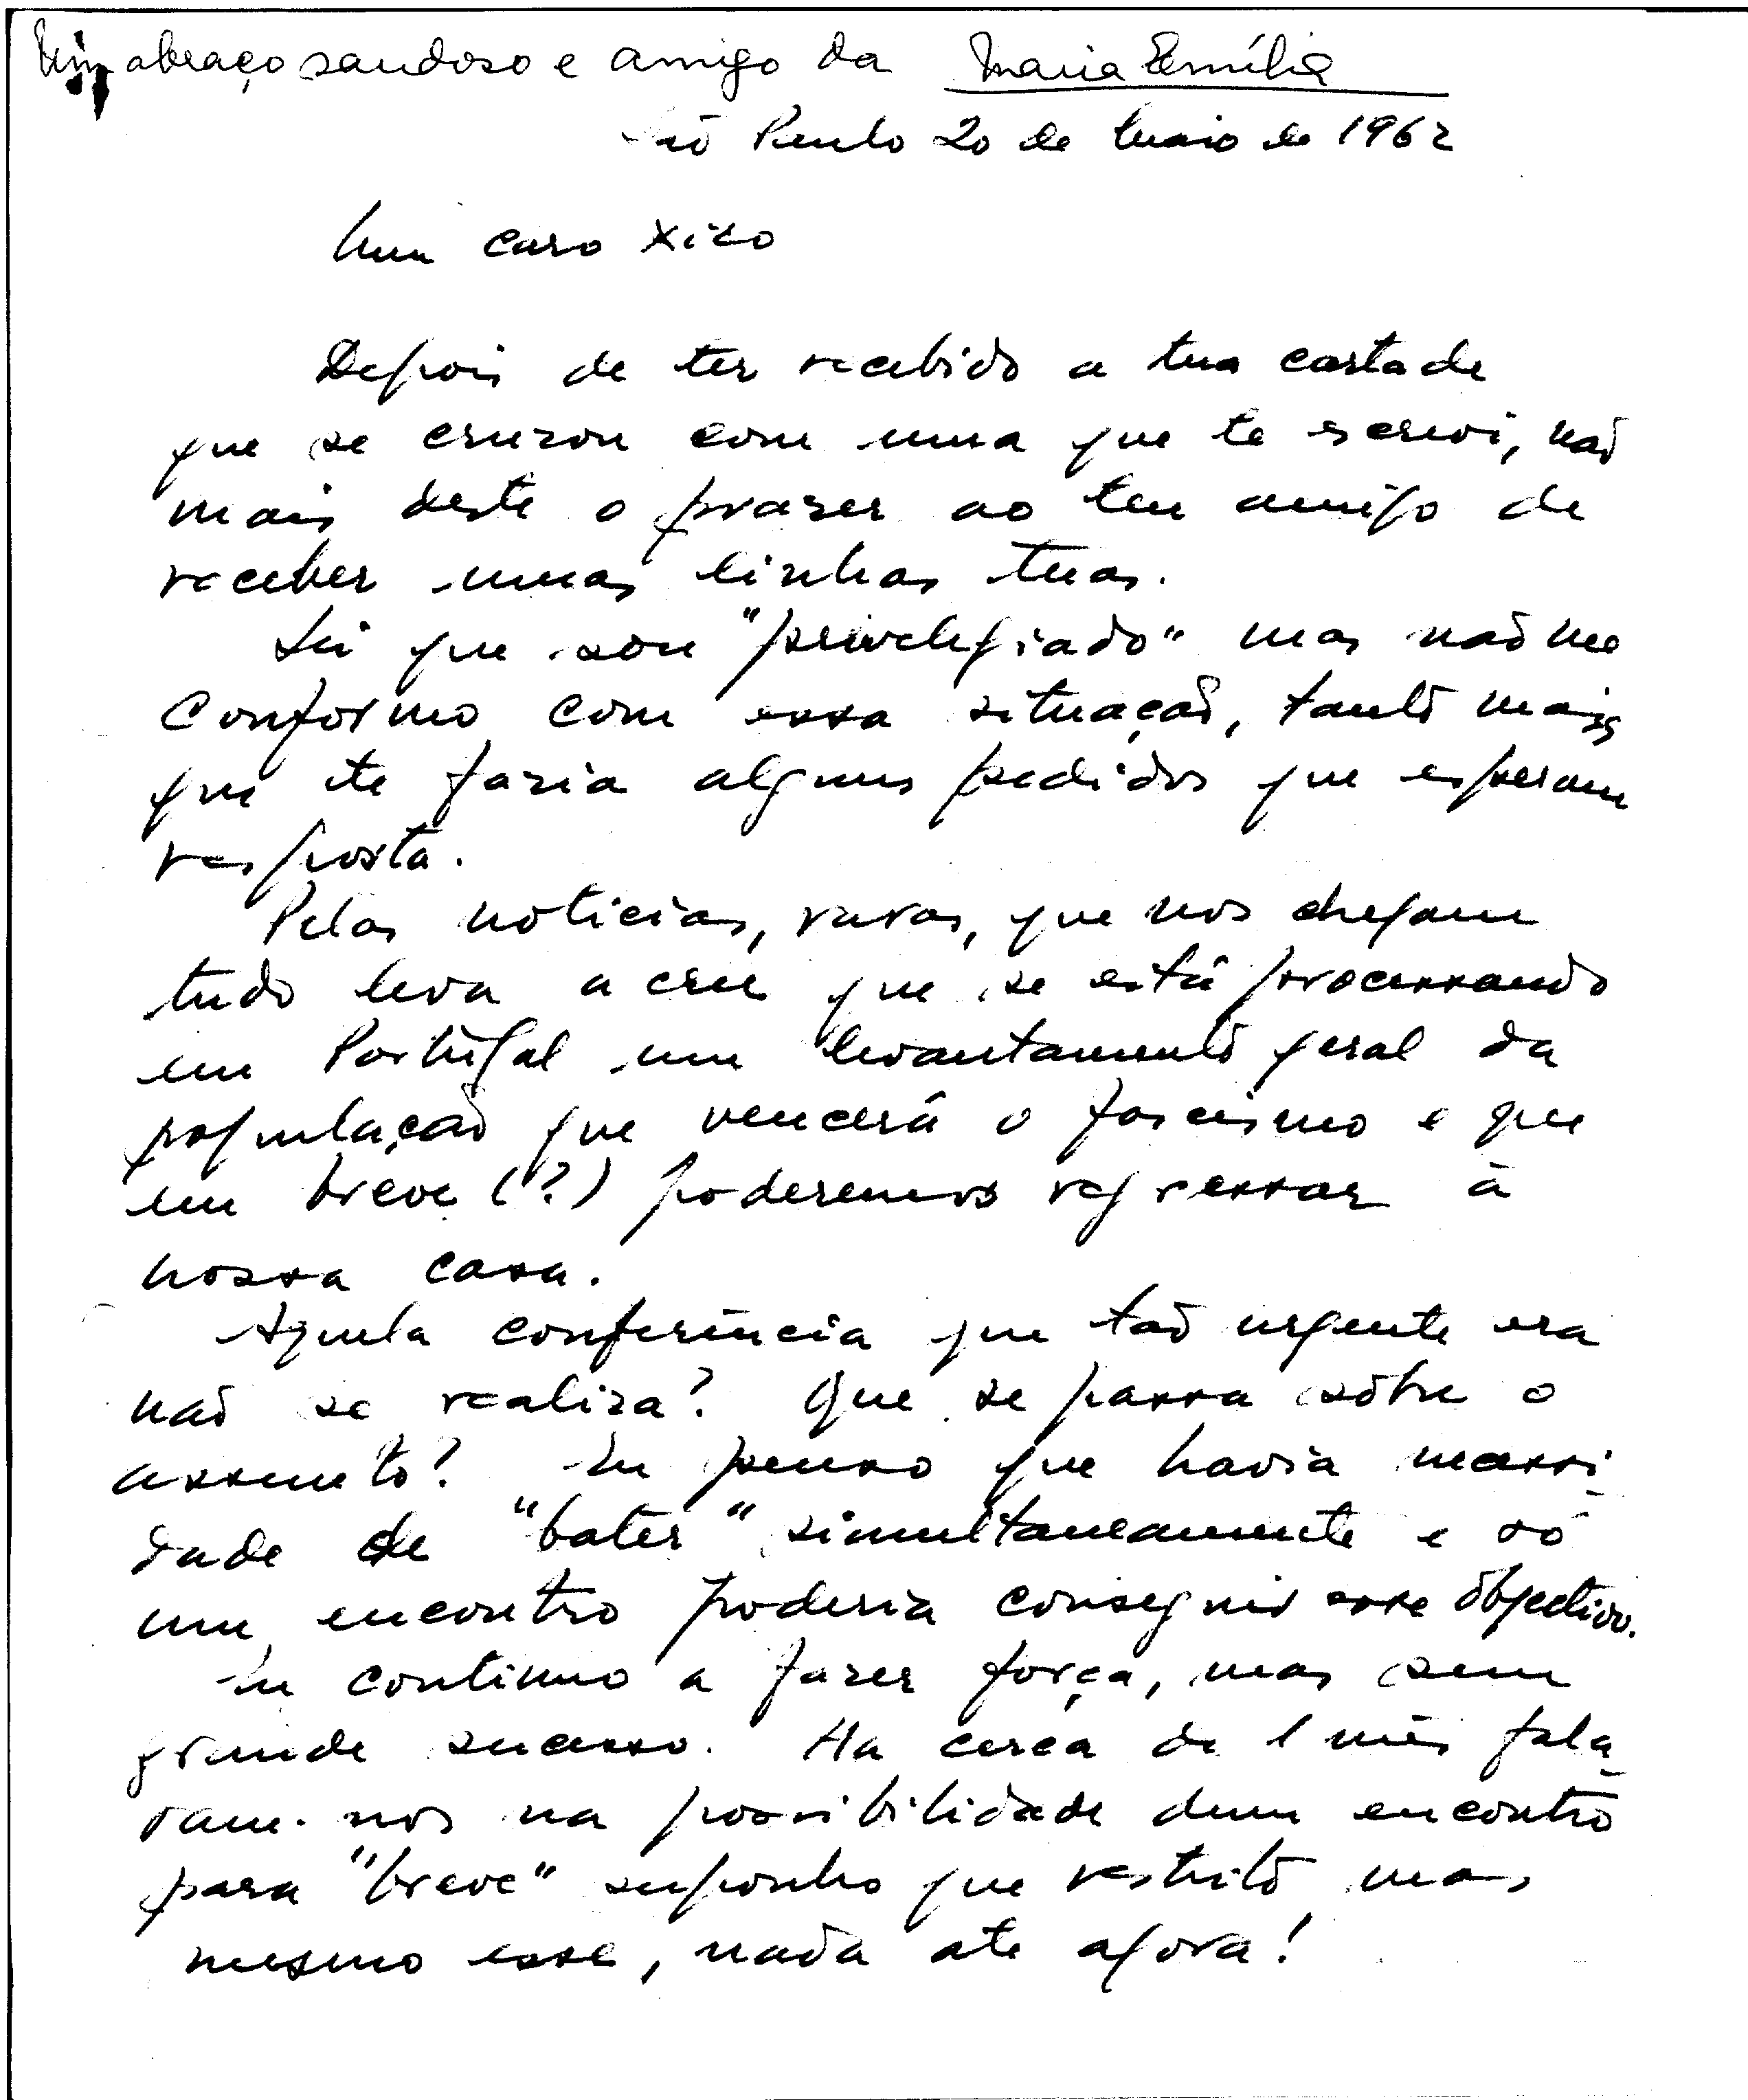 Um abraço saudoso e amigo da Maria Emília
São Paulo 20 de Maio de 1962
Meu caro Xico
Depois de ter recebido a tua carta de
que se cruzou com uma que te escrevi, não
mais deste o prazer ao teu amigo de
receber umas linhas tuas.
Sei que sou "privelegiado" mas não me
conformo com essa situação, tanto mais
que te faria alguns pedidos que esperam
resposta.
Pelas noticias, raras, que nos chegam
tudo leva a crer que se está processando
em Portugal um levantamento geral da
população que vencerá o fascismo e que
em breve (?) poderemos regressar à
nossa casa.
Aquela conferência que tão urgente era
não se realiza? Que se passa sôbre o
assunto? Eu penso que havia
dade de "bater" simultaneamente e só
um encontro poderia conseguir esse objectivo.
Eu continuo a fazer força, mas sem
grande sucesso. Ha cerca de 1 mês fala
ram-nos na possibilidade dum encontro
para "breve" suponho que restrito mas,
mesmo esse, nada ate agora!